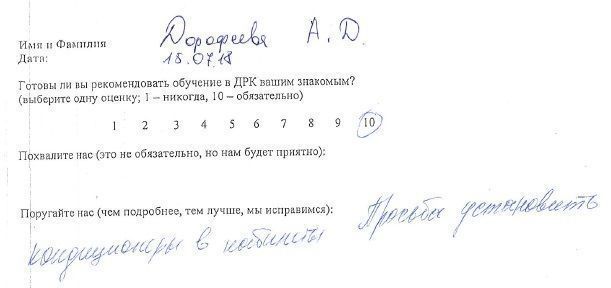 Имя и Фамилия Дорофеева А.Д.
Дата: 18.07.18
Готовы ли вы рекомендовать обучение в ДРК вашим знакомым?
(выберите одну оценку; 1 – никогда, 10 – обязательно)
1 2 3 4 5 6 7 8 9 10
Похвалите нас (это не обязательно, но нам будет приятно):
Поругайте нас (чем подробнее, тем лучше, мы исправимся): Просьба установить
кондиционеры в кабинеты